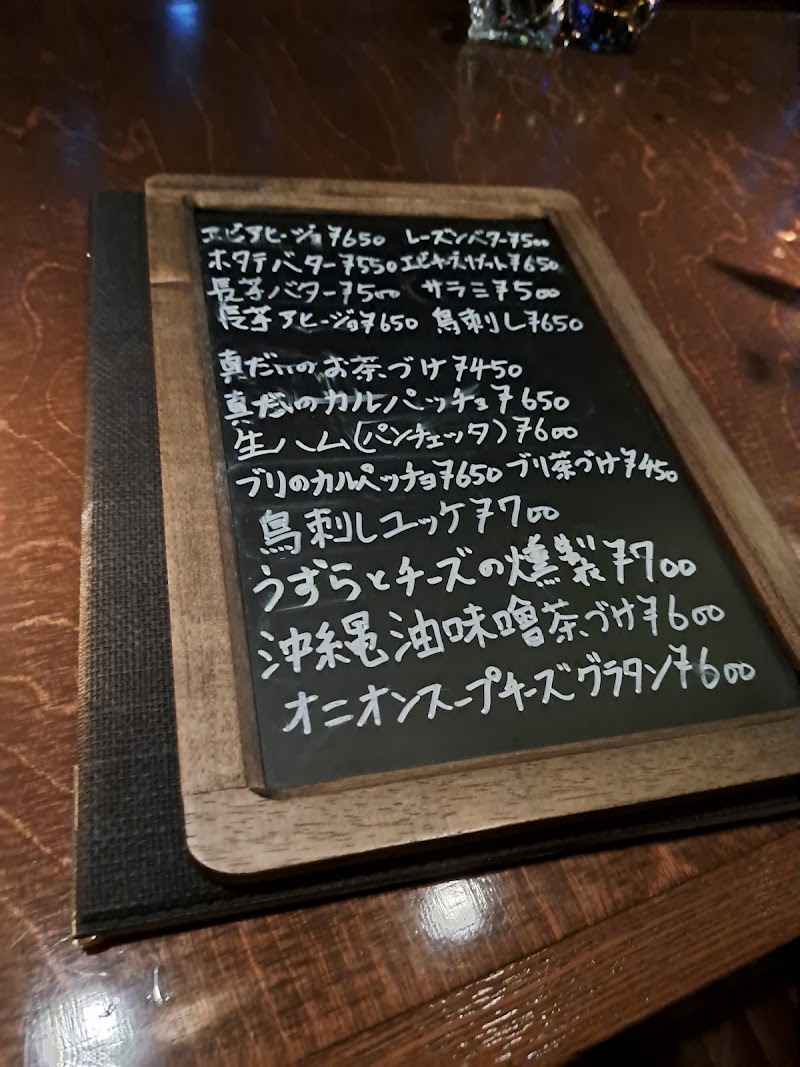 エビアヒージョ ¥650 レーズンバター ¥500
ホタテバター ¥550 ¥650
長芋バター ¥500 サラミ ¥500
長芋アヒージョ ¥650 鳥刺し ¥650
真だいのお茶づけ ¥450
真だいのカルパッチョ ¥650
生ハム(パンチェッタ) ¥600
ブリのカルパッチョ ¥650 ブリ茶づけ ¥450
鳥刺しユッケ ¥700
うずらとチーズの燻製 ¥700
沖縄油味噌茶づけ ¥600
オニオンスープチーズグラタン ¥600